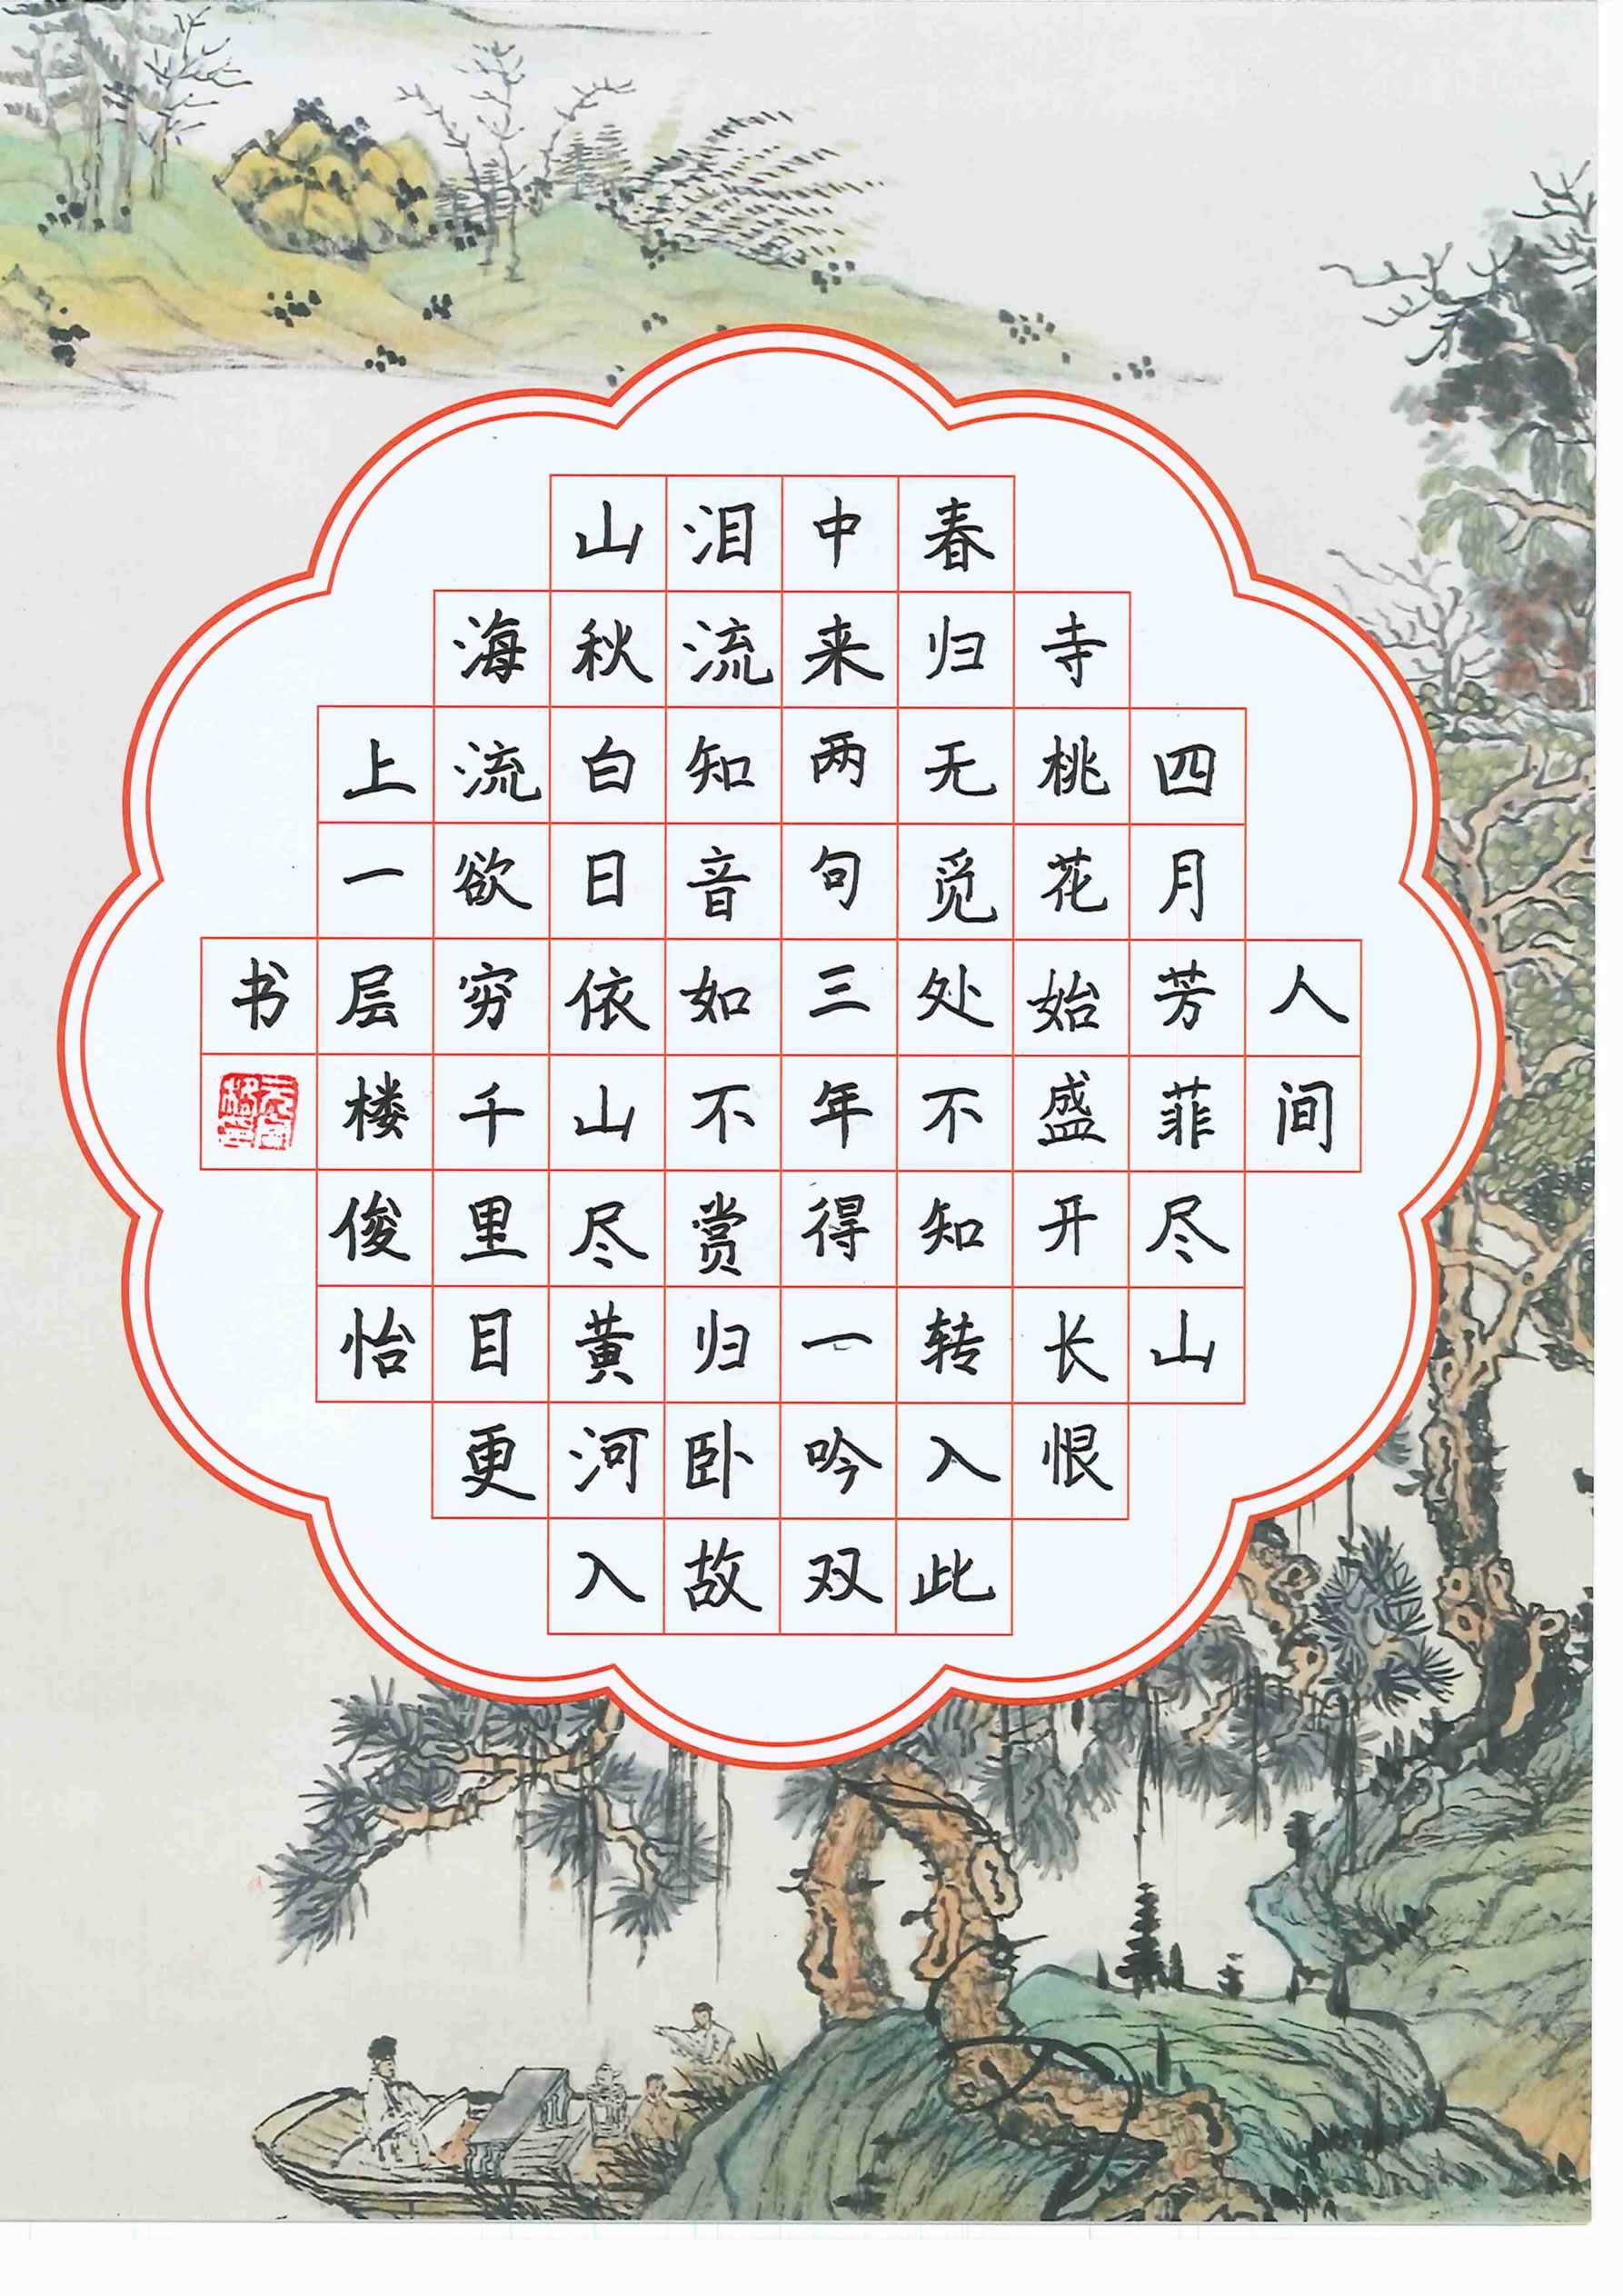 人间
四月芳菲尽山
寺桃花始盛开长恨
春归无觅处不知转入此
中来两句三年得一吟双
泪流知音如不赏归卧故
山秋白日依山尽黄河入
海流欲穷千里目更
上一层楼俊怡
书